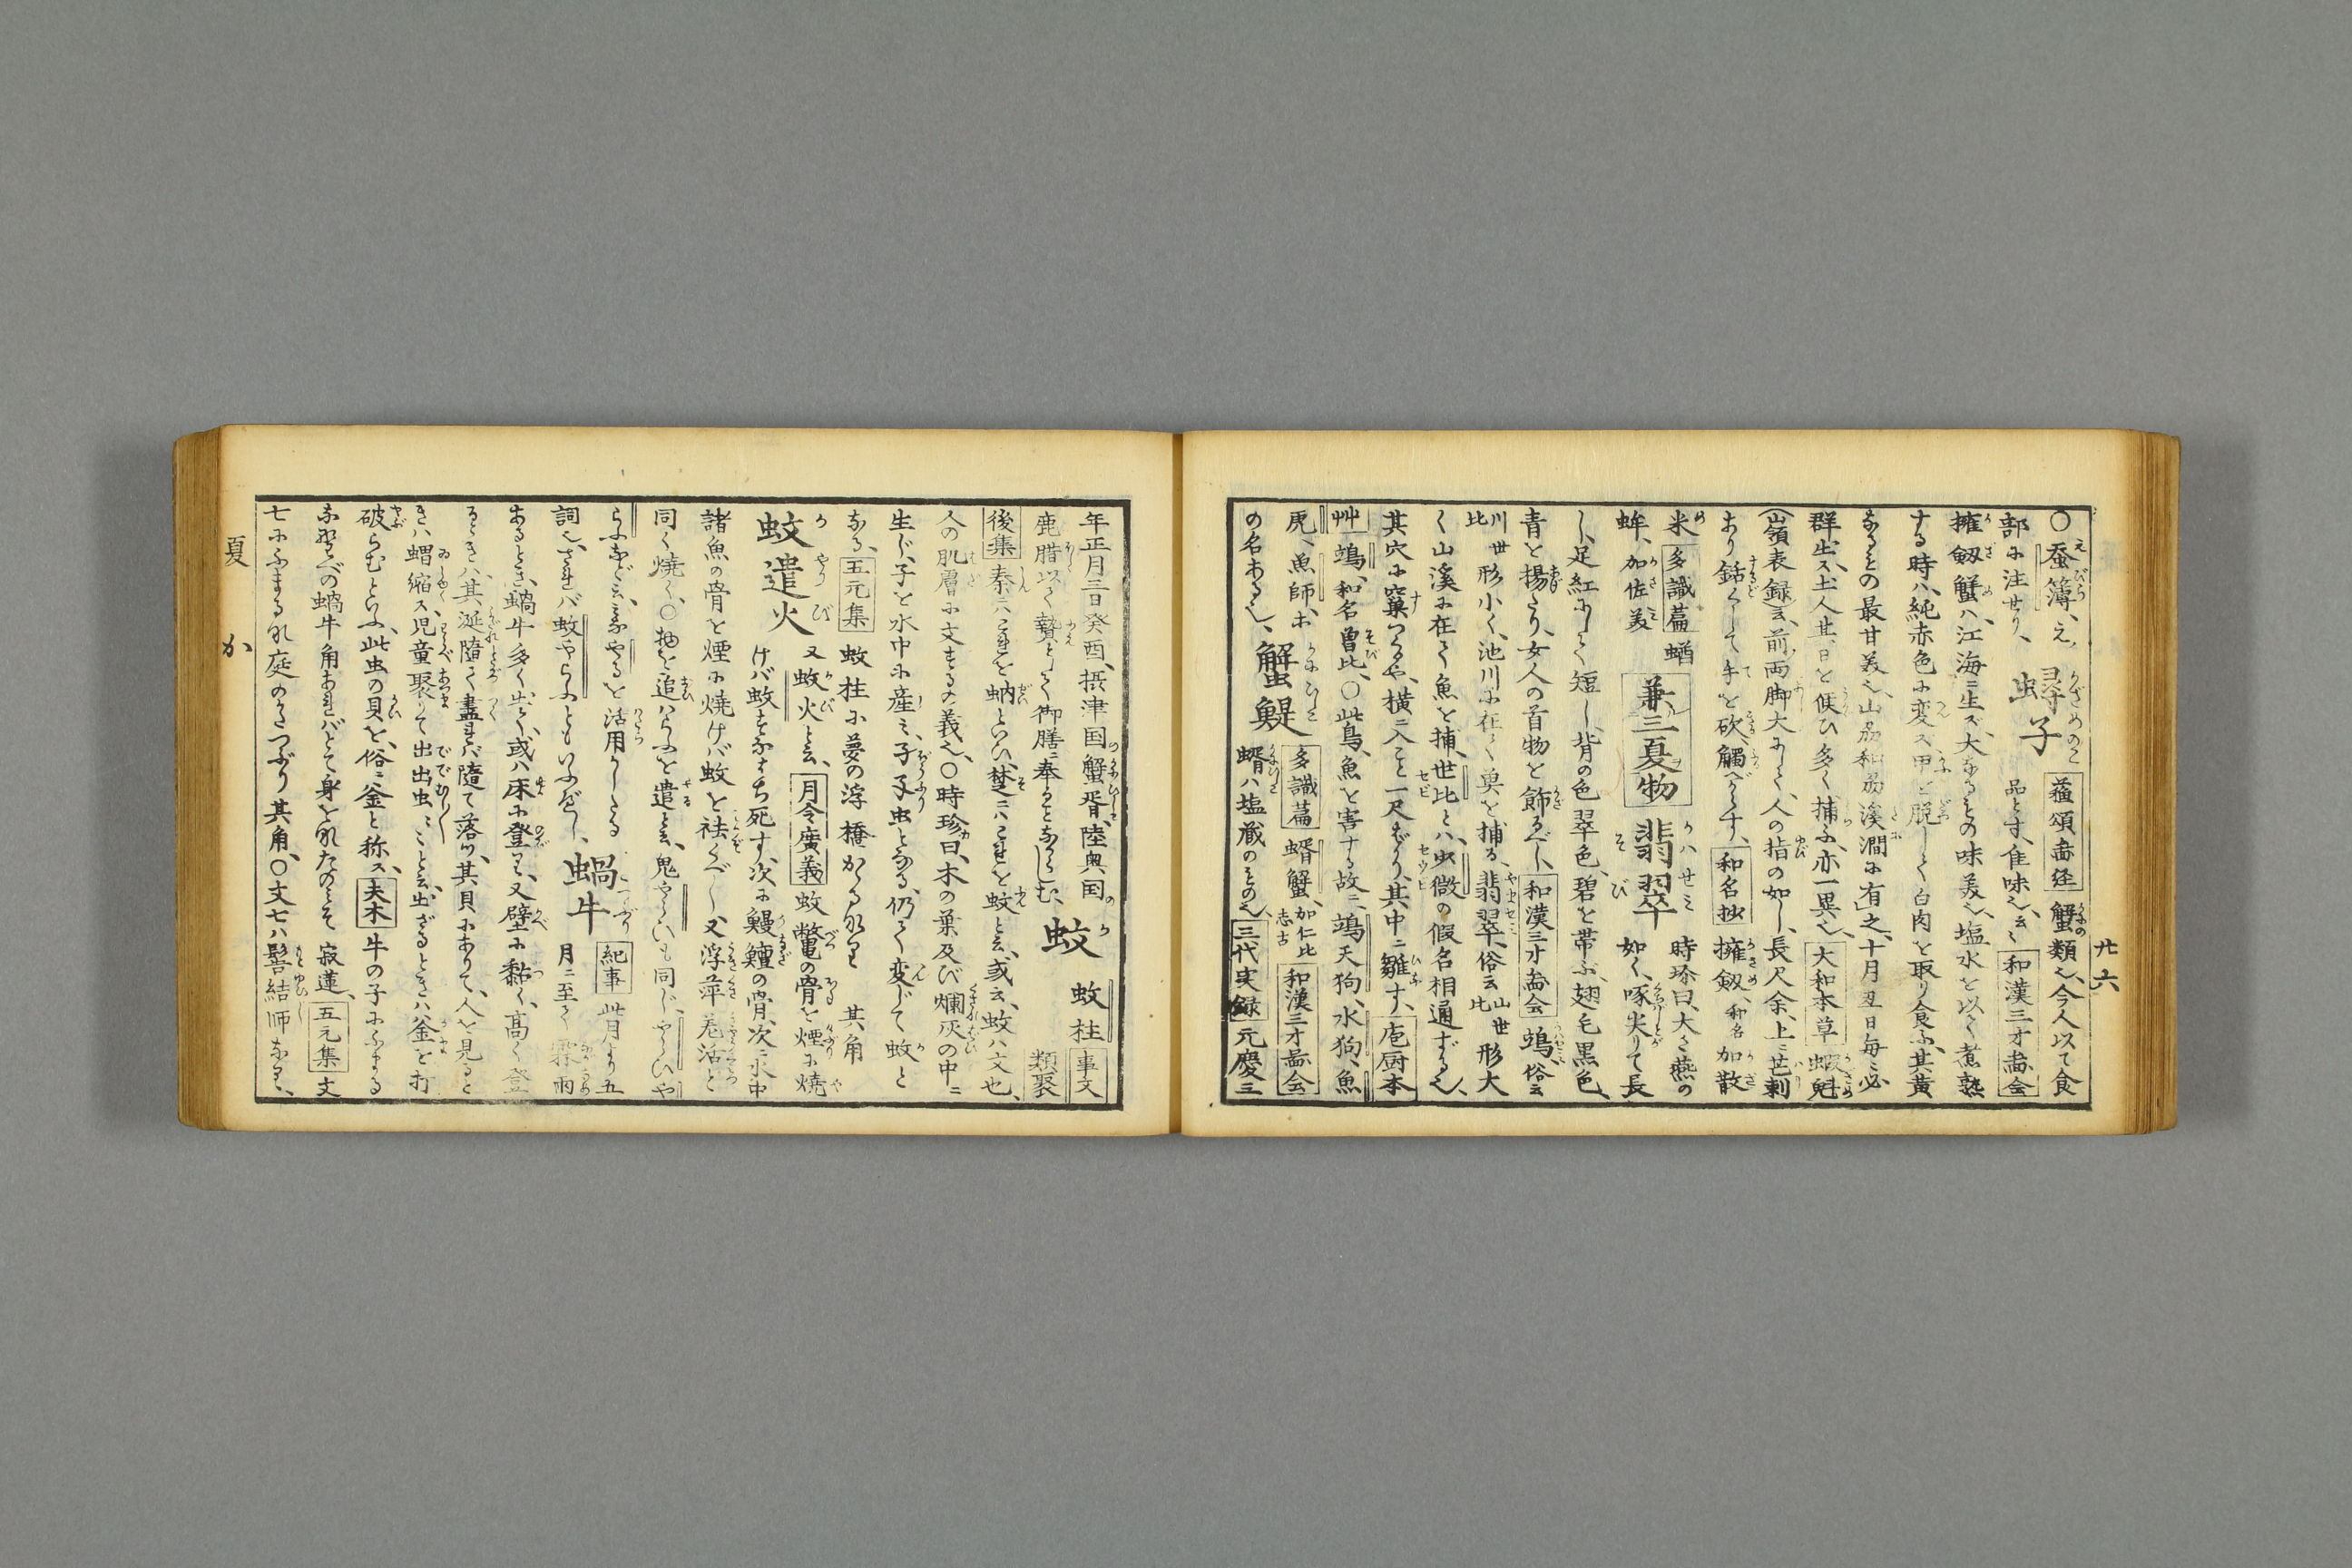 廿六
○蚕簿、え
部に注せり、蟳子 蕴頌畵経 蟹類也、今人以て食
品とす、佳味也、云々 和漢三才畵会
擁劔蟹ハ、江海ニ生ズ、大なるもの味美也、塩水を以く煮熟
する時ハ、純赤色に変ス、甲を脱しく白肉を取り食ふ、其黄
なるもの最甘美也、溪澗に有之、十月丑日毎ニ必
群出ス、土人其日を候ひ多く捕ふ、亦一異也、大和本草 蝦魁
嶺表録ニ云、前両脚大にして、人の指の如し、長尺余、上ニ芒刺
あり銛くして手を砍觸べからす、和名抄 擁劔、和名加散
米 多識篇 蝤
蛑、加佐美 兼三夏物 翡翠 時珍曰、大さ燕の
如く、啄尖りて長
し、足紅にして短し、背の色翠色、碧を帯ぶ、翅毛黒色、
青を揚たり、女人の首物を飾るべし、和漢三才畵会 鴗、俗云
川世比 形小く、池川に在く魚を捕る、翡翠、俗云山世比 形大
く山溪に在て魚を捕、世比とハ、虫微の假名相通ずる也、
其穴に窠つるや、横ニ入こと一尺ばかり、其中ニ雛す、庖厨本
艸 鴗、和名曽比、○此鳥、魚を害する故ニ、鴗天狗、水狗、魚
虎、魚師ホ
の名ある也、蟹鯷 多識篇 蝑蟹、加仁比志古 和漢三才畵会
蝑ハ塩蔵のもの也、三代実録 元慶三
年正月三日癸酉、摂津国蟹胥、陸奥国の
鹿腊以く贄として御膳ニ奉るとなからしむ、蚊 蚊柱 事文類聚
後集 秦ニハこれを蚋といひ、楚ニハこれを蚊と云、或云、蚊ハ文也、
人の肌膚に文するの義也、○時珍曰、木の葉及び爛灰の中ニ
生じ、子を水中に産ミ、孑孑虫となる、仍て変じて蚊と
なる、五元集 蚊柱に夢の浮橋かゝるなり 其角
蚊遣火 又蚊火と云、月令廣義 蚊 鼈の骨を煙に焼
けバ蚊すなはち死す、次に鰻鱺の骨、次ニ水中
諸魚の骨を煙に焼けバ蚊を祛くべし 又浮萍 羗活と
同く焼く、○抽を追はらふを遣と云、鬼やらいも同じ、やらひや
らふなど云、るやるを活用かしたる
詞也、されバ蚊やらふともいふべし、蝸牛 紀事 此月より五
月ニ至て、霖雨
あるとき、蝸牛多く出て、或ハ床に登ミ、又壁に黏く、高く登
るときハ、其涎隨く盡れバ隨て落ツ、其貝にありて、人を見ると
きハ蝟縮ス、児童聚りて出出虫ニこと云、出ざるときハ釜を打
破らむといふ、此虫の貝を、俗ニ釜と称ス、夫木 牛の子にふまる
な野べの蝸牛角あればとて身をなたのミそ 寂蓮、五元集 文
七にふまるな庭のかたつぶり 其角、○文七ハ髻結師なり、
夏
か